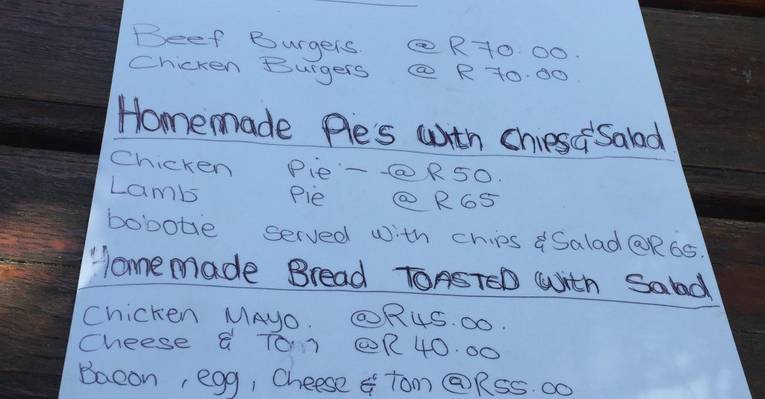 Beef Burgers. @ R70.00.
Chicken Burgers @ R 70.00
Homemade Pie's with chips & Salad
Chicken Pie - @R50.
Lamb Pie @ R65
bobotie served with chips & Salad @R65.
Homemade Bread TOASTED with Salad
Chicken MAYO. @R45.00.
Cheese & Tom @R 40.00
Bacon, egg, Cheese & Tom @R55.00